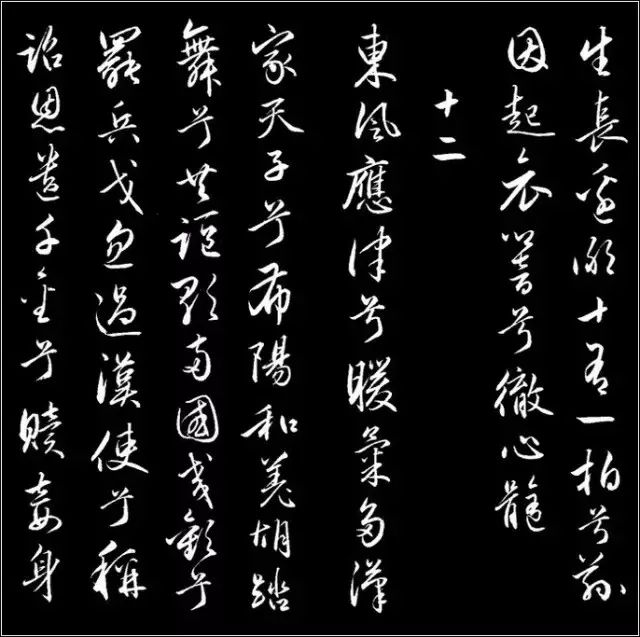 生長邊鄙十有一拍兮茲
因起哀響兮徹心髓
十二
東風應律兮暖氣多漢
家天子兮布陽和羌胡踏
舞兮共謳歌兩國交歡兮
罷兵戈忽遇漢使兮稱
詔恩遺千金兮贖妾身